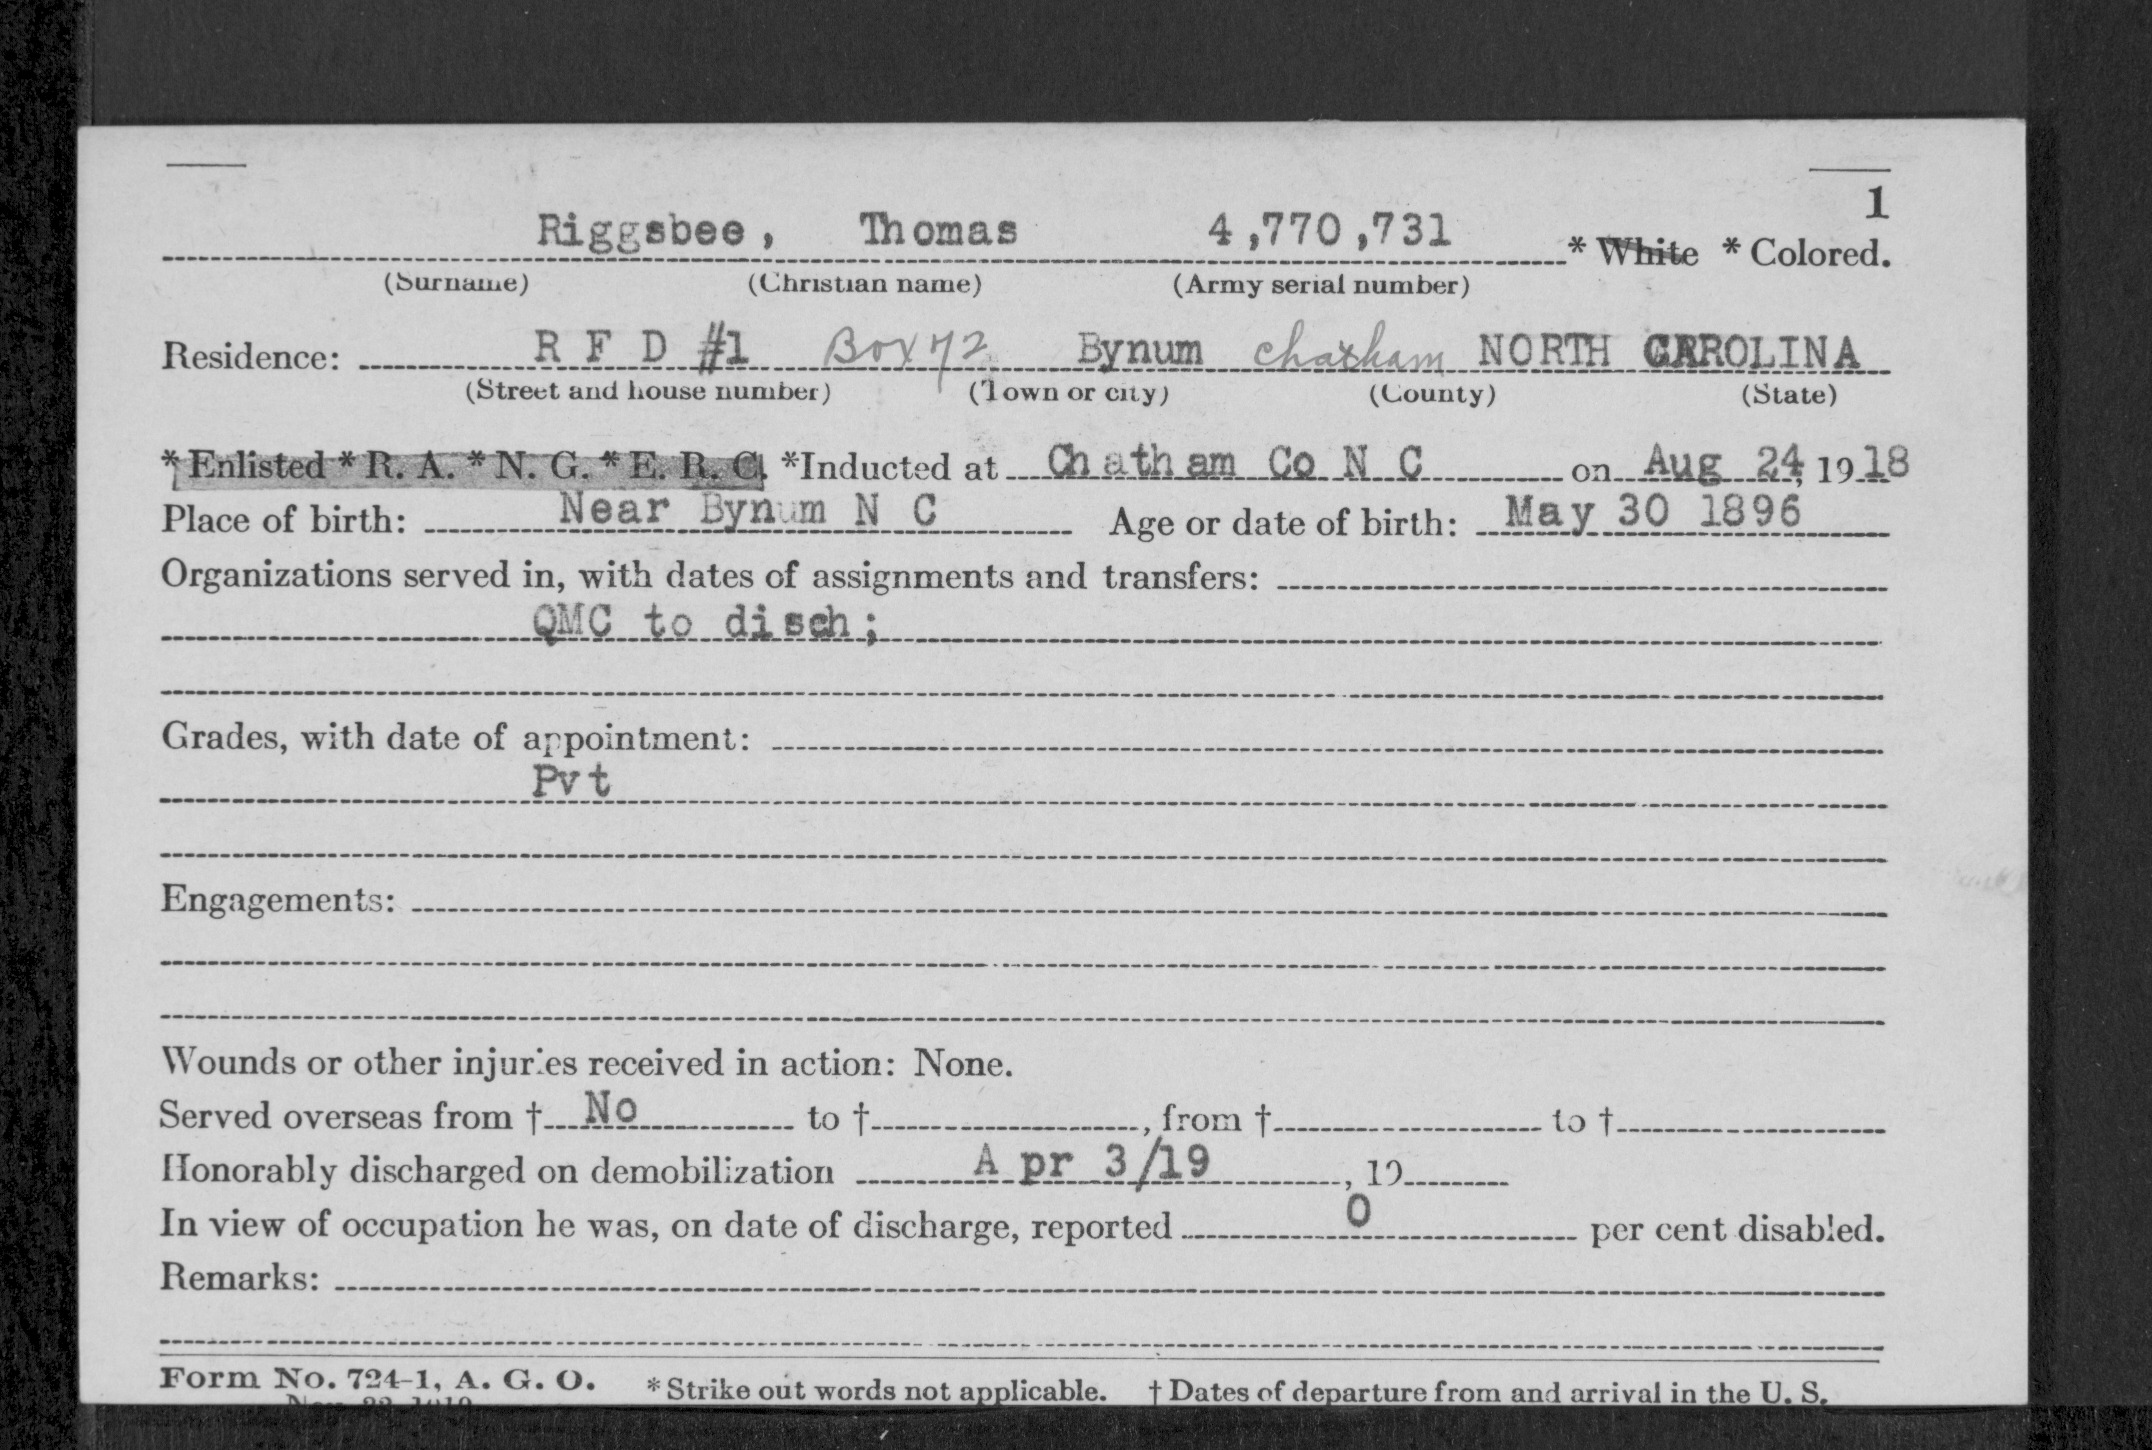 1
Riggsbee, Thomas 4,770,731 * White * Colored.
(Surname) (Christian name) (Army serial number)
Residence: R F D #1 Box 72 Bynum Chatham NORTH CAROLINA
(Street and house number) (Town or city) (County) (State)
* Enlisted * R. A. * N. G. * E. R. C. *Inducted at Chatham Co N C on Aug 24, 19 18
Place of birth: Near Bynum N C Age or date of birth: May 30 1896
Organizations served in, with dates of assignments and transfers:
QMC to disch;
Grades, with date of appointment:
Pvt
Engagements:
Wounds or other injuries received in action: None.
Served overseas from † No to † , from † to †
Honorably discharged on demobilization Apr 3/19 , 19
In view of occupation he was, on date of discharge, reported 0 per cent disabled.
Remarks:
Form No. 724-1, A. G. O. * Strike out words not applicable. † Dates of departure from and arrival in the U. S.